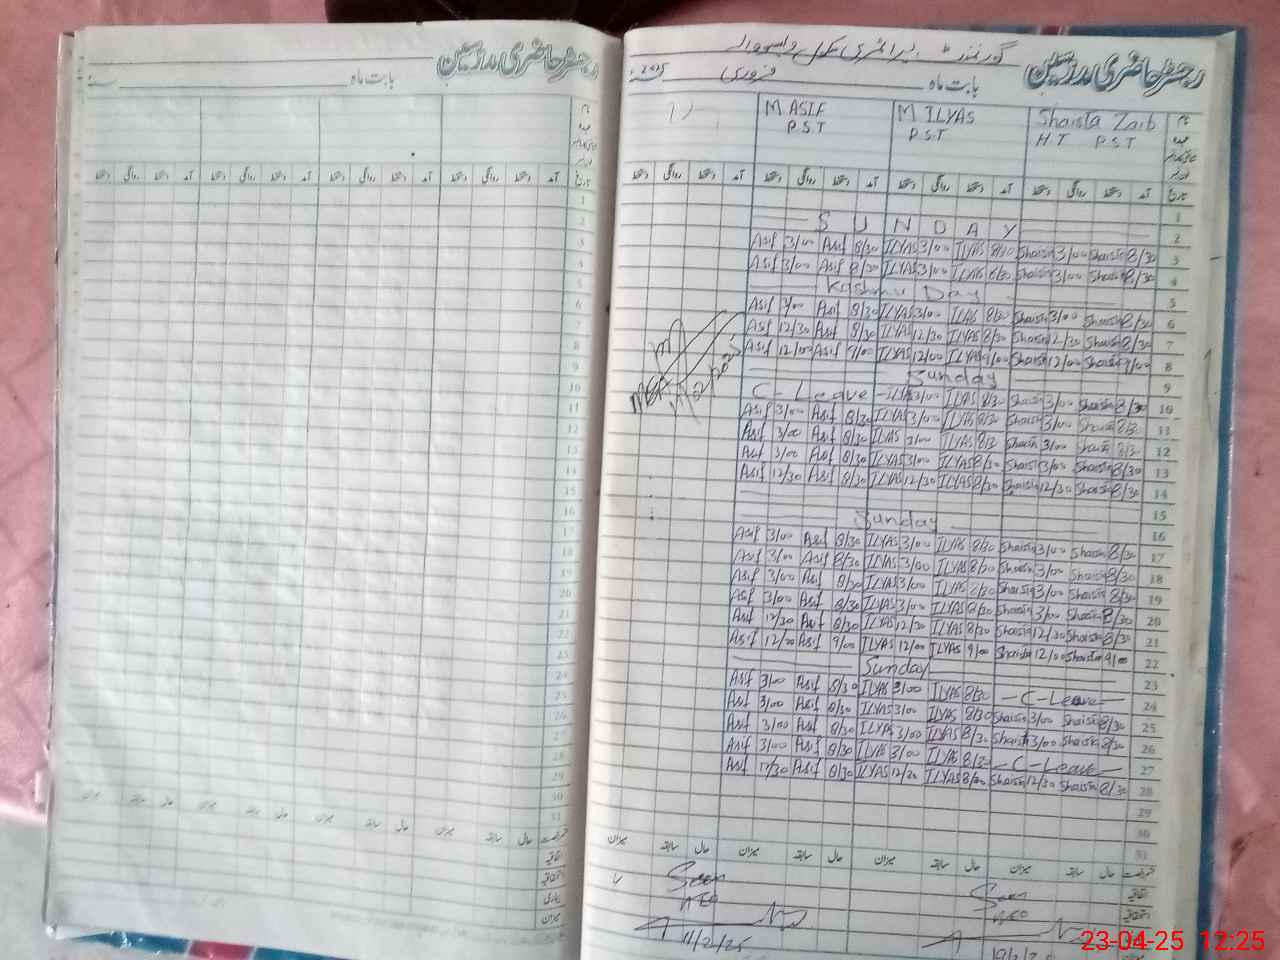 رجسٹر حاضری مدرسین
بابت ماہ
سنہ
نام
عہدہ
تاریخ آمد دستخط روانگی دستخط آمد دستخط روانگی دستخط آمد دستخط روانگی دستخط آمد دستخط روانگی دستخط
1
2
3
4
5
6
7
8
9
10
11
12
13
14
15
16
17
18
19
20
21
22
23
24
25
26
27
28
29
30
31
حال سابقہ میزان حال سابقہ میزان حال سابقہ میزان حال سابقہ میزان
اتفاقیہ
بیماری
میزان
رجسٹر حاضری مدرسین
گورنمنٹ پرائمری سکول
بابت ماہ فروری سنہ 2025
نام Shaista Zaib M ILYAS M ASIF
عہدہ H.T P.S.T P.S.T P.S.T
تاریخ آمد دستخط روانگی دستخط آمد دستخط روانگی دستخط آمد دستخط روانگی دستخط آمد دستخط روانگی دستخط
1
SUNDAY 2
Asif 3/00 Asif 8/30 ILYAS 3/00 ILYAS 8/30 Shaista 3/00 Shaista 8/30 3
Asif 3/00 Asif 8/30 ILYAS 3/00 ILYAS 8/30 Shaista 3/00 Shaista 8/30 4
Kashmir Day 5
Asif 3/00 Asif 8/30 ILYAS 3/00 ILYAS 8/30 Shaista 3/00 Shaista 8/30 6
Asif 12/30 Asif 8/30 ILYAS 12/30 ILYAS 8/30 Shaista 12/30 Shaista 8/30 7
Asif 12/00 Asif 9/00 ILYAS 12/00 ILYAS 9/00 Shaista 12/00 Shaista 9/00 8
Sunday 9
C-Leave ILYAS 3/00 ILYAS 8/30 Shaista 3/00 Shaista 8/30 10
Asif 3/00 Asif 8/30 ILYAS 3/00 ILYAS 8/30 Shaista 3/00 Shaista 8/30 11
Asif 3/00 Asif 8/30 ILYAS 3/00 ILYAS 8/30 Shaista 3/00 Shaista 8/30 12
Asif 3/00 Asif 8/30 ILYAS 3/00 ILYAS 8/30 Shaista 3/00 Shaista 8/30 13
Asif 12/30 Asif 8/30 ILYAS 12/30 ILYAS 8/30 Shaista 12/30 Shaista 8/30 14
15
Sunday 16
Asif 3/00 Asif 8/30 ILYAS 3/00 ILYAS 8/30 Shaista 3/00 Shaista 8/30 17
Asif 3/00 Asif 8/30 ILYAS 3/00 ILYAS 8/30 Shaista 3/00 Shaista 8/30 18
Asif 3/00 Asif 8/30 ILYAS 3/00 ILYAS 8/30 Shaista 3/00 Shaista 8/30 19
Asif 3/00 Asif 8/30 ILYAS 3/00 ILYAS 8/30 Shaista 3/00 Shaista 8/30 20
Asif 12/30 Asif 8/30 ILYAS 12/30 ILYAS 8/30 Shaista 12/30 Shaista 8/30 21
Asif 12/00 Asif 9/00 ILYAS 12/00 ILYAS 9/00 Shaista 12/00 Shaista 9/00 22
Sunday 23
Asif 3/00 Asif 8/30 ILYAS 3/00 ILYAS 8/30 -C-Leave- 24
Asif 3/00 Asif 8/30 ILYAS 3/00 ILYAS 8/30 Shaista 3/00 Shaista 8/30 25
Asif 3/00 Asif 8/30 ILYAS 3/00 ILYAS 8/30 Shaista 3/00 Shaista 8/30 26
Asif 3/00 Asif 8/30 ILYAS 3/00 ILYAS 8/30 -C-Leave- 27
Asif 12/30 Asif 8/30 ILYAS 12/30 ILYAS 8/30 Shaista 12/30 Shaista 8/30 28
29
30
31
حال سابقہ میزان حال سابقہ میزان حال سابقہ میزان حال سابقہ میزان
Seen Seen
AEO AEO
11/2/25
23-04-25 12:25